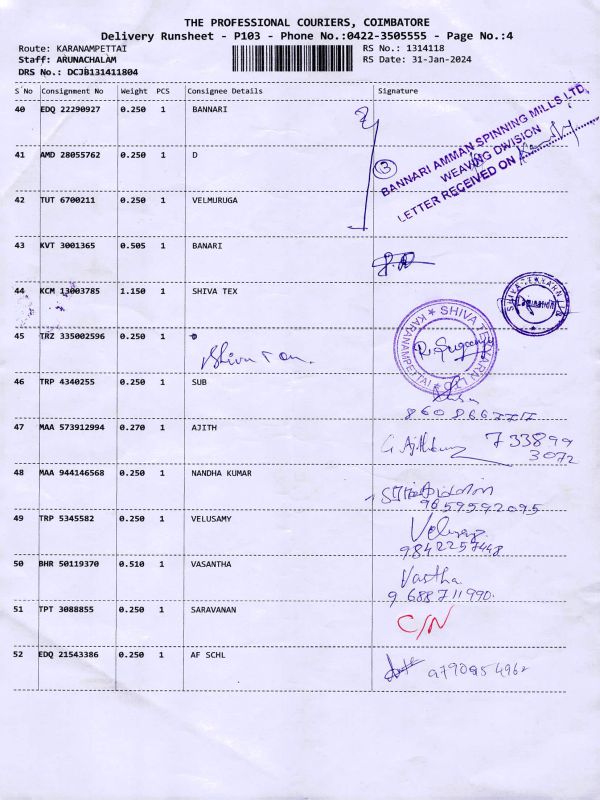 THE PROFESSIONAL COURIERS, COIMBATORE
Delivery Runsheet - P103 - Phone No.:0422-3505555 - Page No.:4
Route: KARANAMPETTAI RS No.: 1314118
Staff: ARUNACHALAM RS Date: 31-Jan-2024
DRS No.: DCJB131411804
S No Consignment No Weight PCS Consignee Details Signature
40 EDQ 22290927 0.250 1 BANNARI
BANNARI AMMAN SPINNING MILLS LTD,
WEAVING DIVISION
LETTER RECEIVED ON
3
41 AMD 28055762 0.250 1 D
42 TUT 6700211 0.250 1 VELMURUGA
43 KVT 3001365 0.505 1 BANARI
44 KCM 13003785 1.150 1 SHIVA TEX
45 TRZ 335002596 0.250 1
SHIVA TEXYARN LTD
KARANAMPETTAI
46 TRP 4340255 0.250 1 SUB
47 MAA 573912994 0.270 1 AJITH
733899
3072
48 MAA 944146568 0.250 1 NANDHA KUMAR
9659592095
49 TRP 5345582 0.250 1 VELUSAMY
9842257448
50 BHR 50119370 0.510 1 VASANTHA
Vastha
9688711990
51 TPT 3088855 0.250 1 SARAVANAN
C/N
52 EDQ 21543386 0.250 1 AF SCHL
9790954962